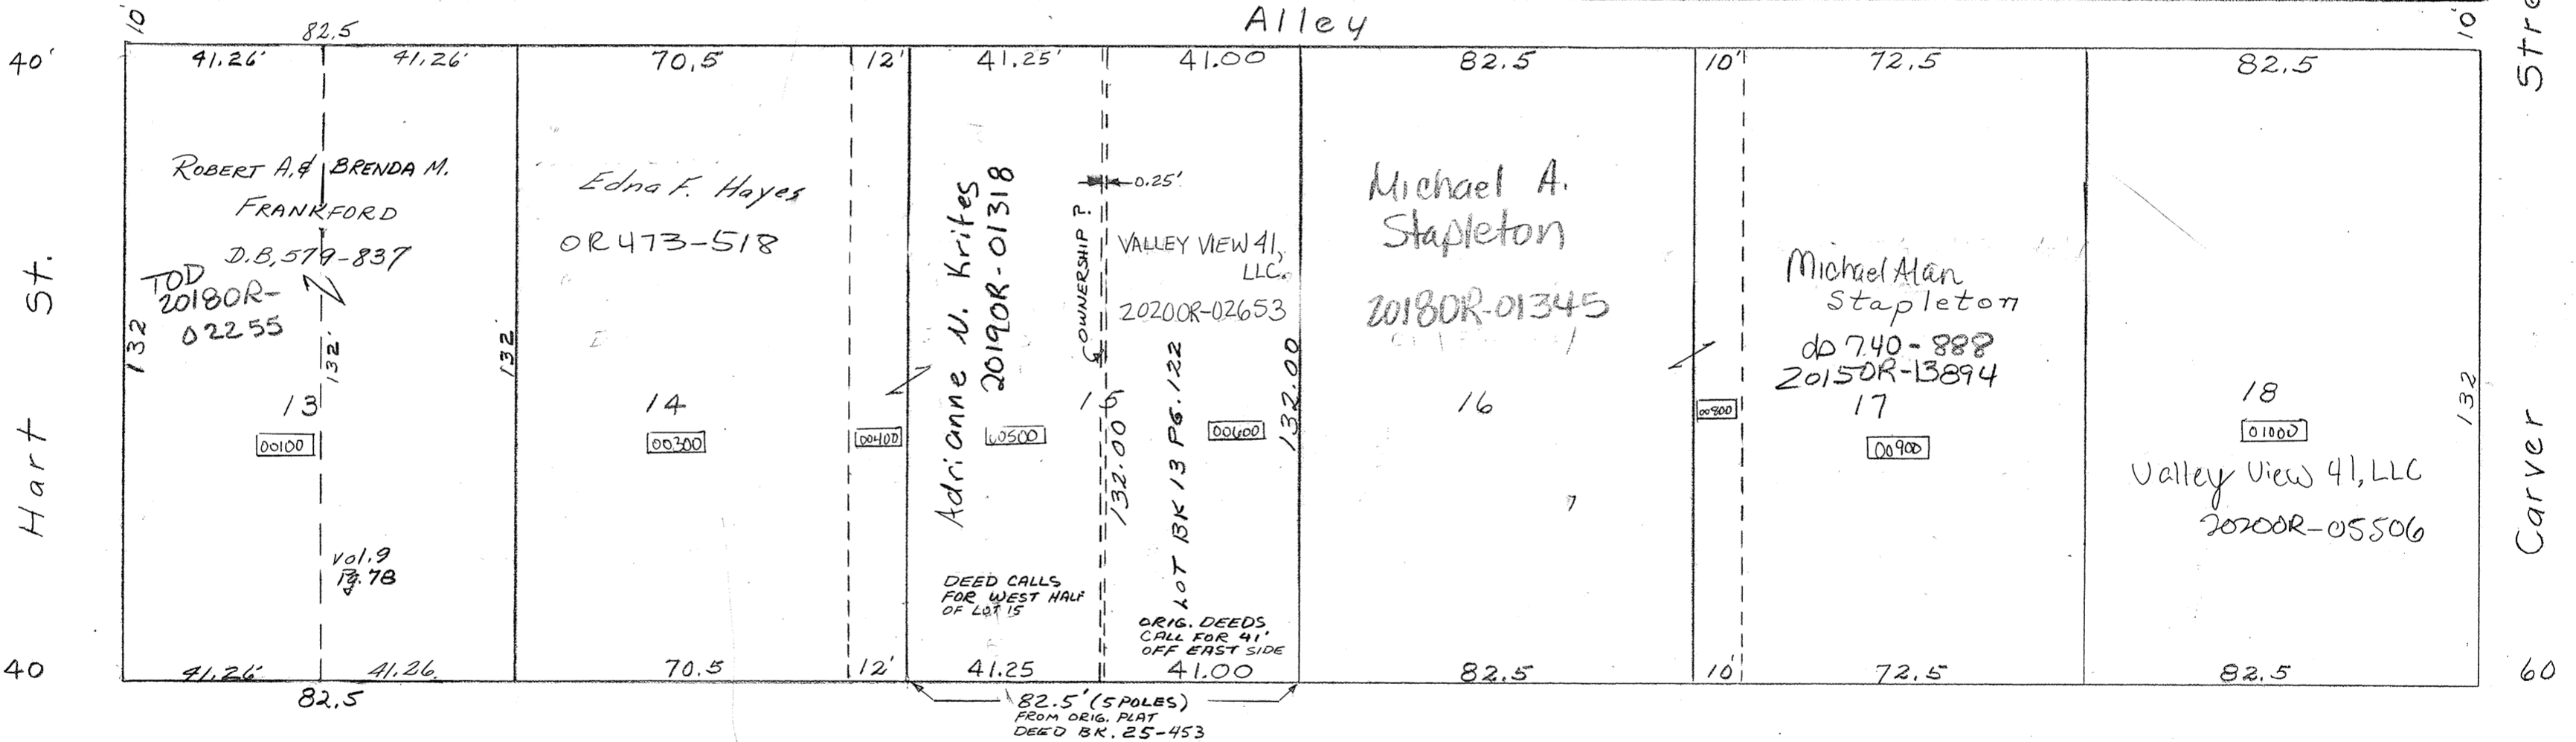 Alley
10'
82.5
10'
40'
41.26'
41.26'
70.5
12'
41.25'
41.00
82.5
10'
72.5
82.5
Hart St.
Carver Stre
ROBERT A. & BRENDA M.
FRANKFORD
D.B. 579-837
TOD
2018OR-
02255
132
132'
132
13
00100
Vol. 9
Pg. 78
Edna F. Hayes
OR 473-518
14
00300
00400
Adrianne N. Krites
2019OR-01318
00500
DEED CALLS
FOR WEST HALF
OF LOT 15
OWNERSHIP?
0.25'
15
132.00
VALLEY VIEW 41,
LLC.
2020OR-02653
LOT BK 13 PG. 122
00600
132.00
ORIG. DEEDS
CALL FOR 41'
OFF EAST SIDE
Michael A.
Stapleton
2018OR-01345
16
00800
Michael Alan
Stapleton
db 740-888
2015OR-13894
17
00900
18
01000
Valley View 41, LLC
2020OR-05506
132
40
41.26'
41.26
70.5
12'
41.25
41.00
82.5
10'
72.5
82.5
60
82.5
82.5' (5 POLES)
FROM ORIG. PLAT
DEED BK. 25-453